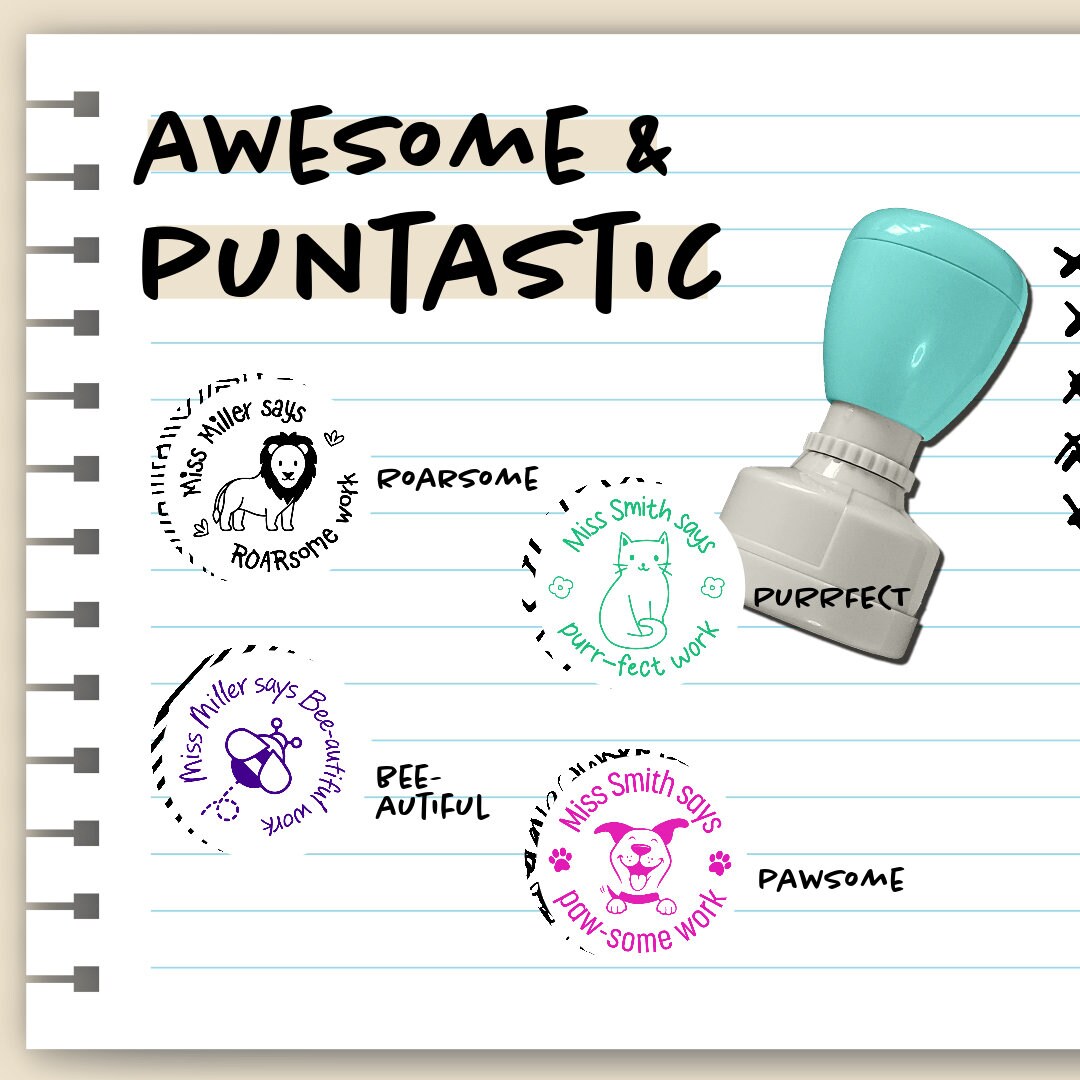 AWESOME &
PUNTASTIC
Miss Miller says
ROARsome work
ROARSOME
Miss Smith says
purr-fect work
PURRFECT
Miss Miller says Bee-autiful work
BEE-
AUTIFUL
Miss Smith says
paw-some work
PAWSOME